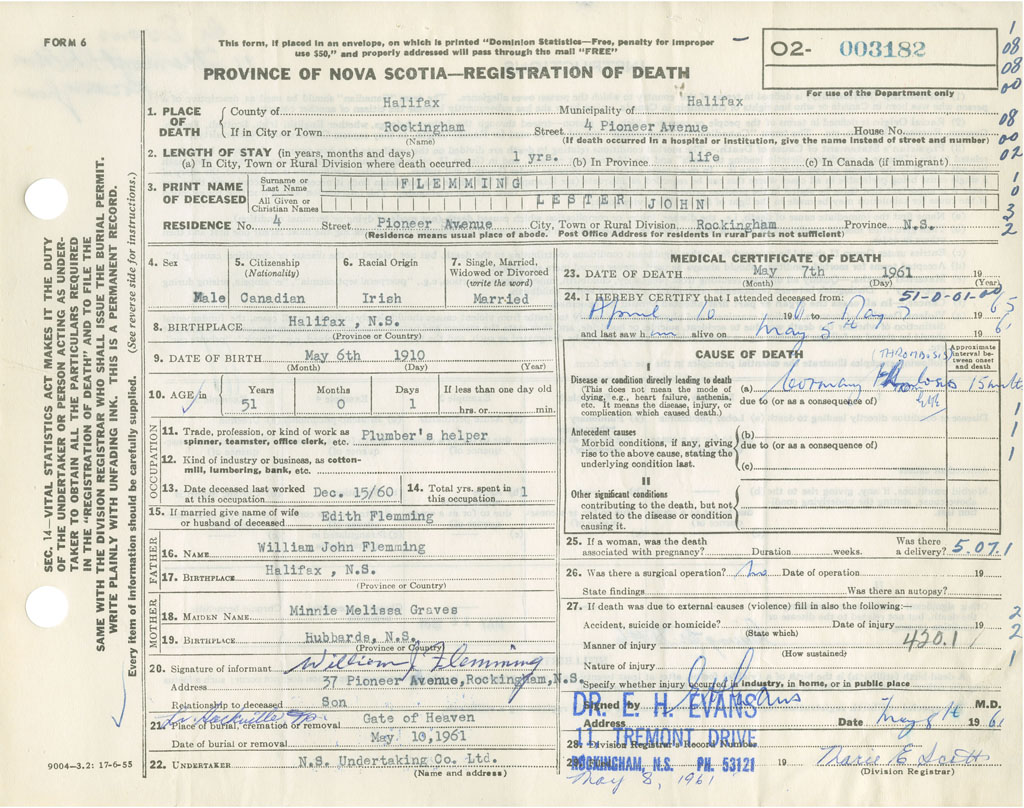 FORM 6
This form, if placed in an envelope, on which is printed "Dominion Statistics—Free, penalty for improper
use $50," and properly addressed will pass through the mail "FREE"
O2- 003182
For use of the Department only
PROVINCE OF NOVA SCOTIA—REGISTRATION OF DEATH
1. PLACE OF DEATH
County of Halifax Municipality of Halifax
If in City or Town Rockingham Street 4 Pioneer Avenue House No.
(Name) (If death occurred in a hospital or institution, give the name instead of street and number)
2. LENGTH OF STAY (in years, months and days)
(a) In City, Town or Rural Division where death occurred 1 yrs. (b) In Province life (c) In Canada (if immigrant)
3. PRINT NAME OF DECEASED
Surname or Last Name FLEMMING
All Given or Christian Names LESTER JOHN
RESIDENCE No. 4 Street Pioneer Avenue City, Town or Rural Division Rockingham Province N.S.
(Residence means usual place of abode. Post Office Address for residents in rural parts not sufficient)
4. Sex
Male
5. Citizenship
(Nationality)
Canadian
6. Racial Origin
Irish
7. Single, Married, Widowed or Divorced
(write the word)
Married
8. BIRTHPLACE Halifax , N.S.
(Province or Country)
9. DATE OF BIRTH May 6th 1910
(Month) (Day) (Year)
10. AGE in
Years Months Days If less than one day old
51 0 1 hrs. or min.
OCCUPATION
11. Trade, profession, or kind of work as
spinner, teamster, office clerk, etc. Plumber's helper
12. Kind of industry or business, as cotton-
mill, lumbering, bank, etc.
13. Date deceased last worked
at this occupation Dec. 15/60
14. Total yrs. spent in
this occupation 1
15. If married give name of wife
or husband of deceased Edith Flemming
FATHER
16. NAME William John Flemming
17. BIRTHPLACE Halifax , N.S.
(Province or Country)
MOTHER
18. MAIDEN NAME Minnie Melissa Graves
19. BIRTHPLACE Hubbards, N.S.
(Province or Country)
20. Signature of informant William J Flemming
Address 37 Pioneer Avenue,Rockingham,N.S.
Relationship to deceased Son
21. Place of burial, cremation or removal Gate of Heaven
Date of burial or removal May. 10,1961
22. UNDERTAKER N.S. Undertaking Co. Ltd.
(Name and address)
9004-3.2: 17-6-55
MEDICAL CERTIFICATE OF DEATH
23. DATE OF DEATH May 7th 1961 19
(Month) (Day) (Year)
51-0-01-09
24. I HEREBY CERTIFY that I attended deceased from:
April 10 1961 to May 7
and last saw him alive on May 5th 1961
CAUSE OF DEATH
Approximate interval between onset and death
(THROMBOSIS)
I
Disease or condition directly leading to death
(This does not mean the mode of
dying, e.g., heart failure, asthenia,
etc. It means the disease, injury, or
complication which caused death.)
(a) Coronary Thrombosis
due to (or as a consequence of)
Antecedent causes
Morbid conditions, if any, giving
rise to the above cause, stating the
underlying condition last.
(b)
due to (or as a consequence of)
(c)
II
Other significant conditions
contributing to the death, but not
related to the disease or condition
causing it.
25. If a woman, was the death
associated with pregnancy? Duration weeks. Was there
a delivery? 5.07.1
26. Was there a surgical operation? no Date of operation 19
State findings Was there an autopsy?
27. If death was due to external causes (violence) fill in also the following:—
Accident, suicide or homicide? Date of injury 19
(State which)
Manner of injury 420.1
(How sustained)
Nature of injury
Specify whether injury occurred in industry, in home, or in public place
Signed by M.D.
Address Date May 8th 1961
DR. E. H. EVANS
11 TREMONT DRIVE
ROCKINGHAM, N.S. PH. 53121
28. Division Registrar's Record Number
May 8, 1961
Marie E Scott
(Division Registrar)
SEC. 14—VITAL STATISTICS ACT MAKES IT THE DUTY
OF THE UNDERTAKER OR PERSON ACTING AS UNDER-
TAKER TO OBTAIN ALL THE PARTICULARS REQUIRED
IN THE "REGISTRATION OF DEATH" AND TO FILE THE
SAME WITH THE DIVISION REGISTRAR WHO SHALL ISSUE THE BURIAL PERMIT.
WRITE PLAINLY WITH UNFADING INK. THIS IS A PERMANENT RECORD.
Every item of information should be carefully supplied. (See reverse side for instructions.)
1
08
08
00
08
00
02
1
0
3
2
1
1
1
1
2
2
1